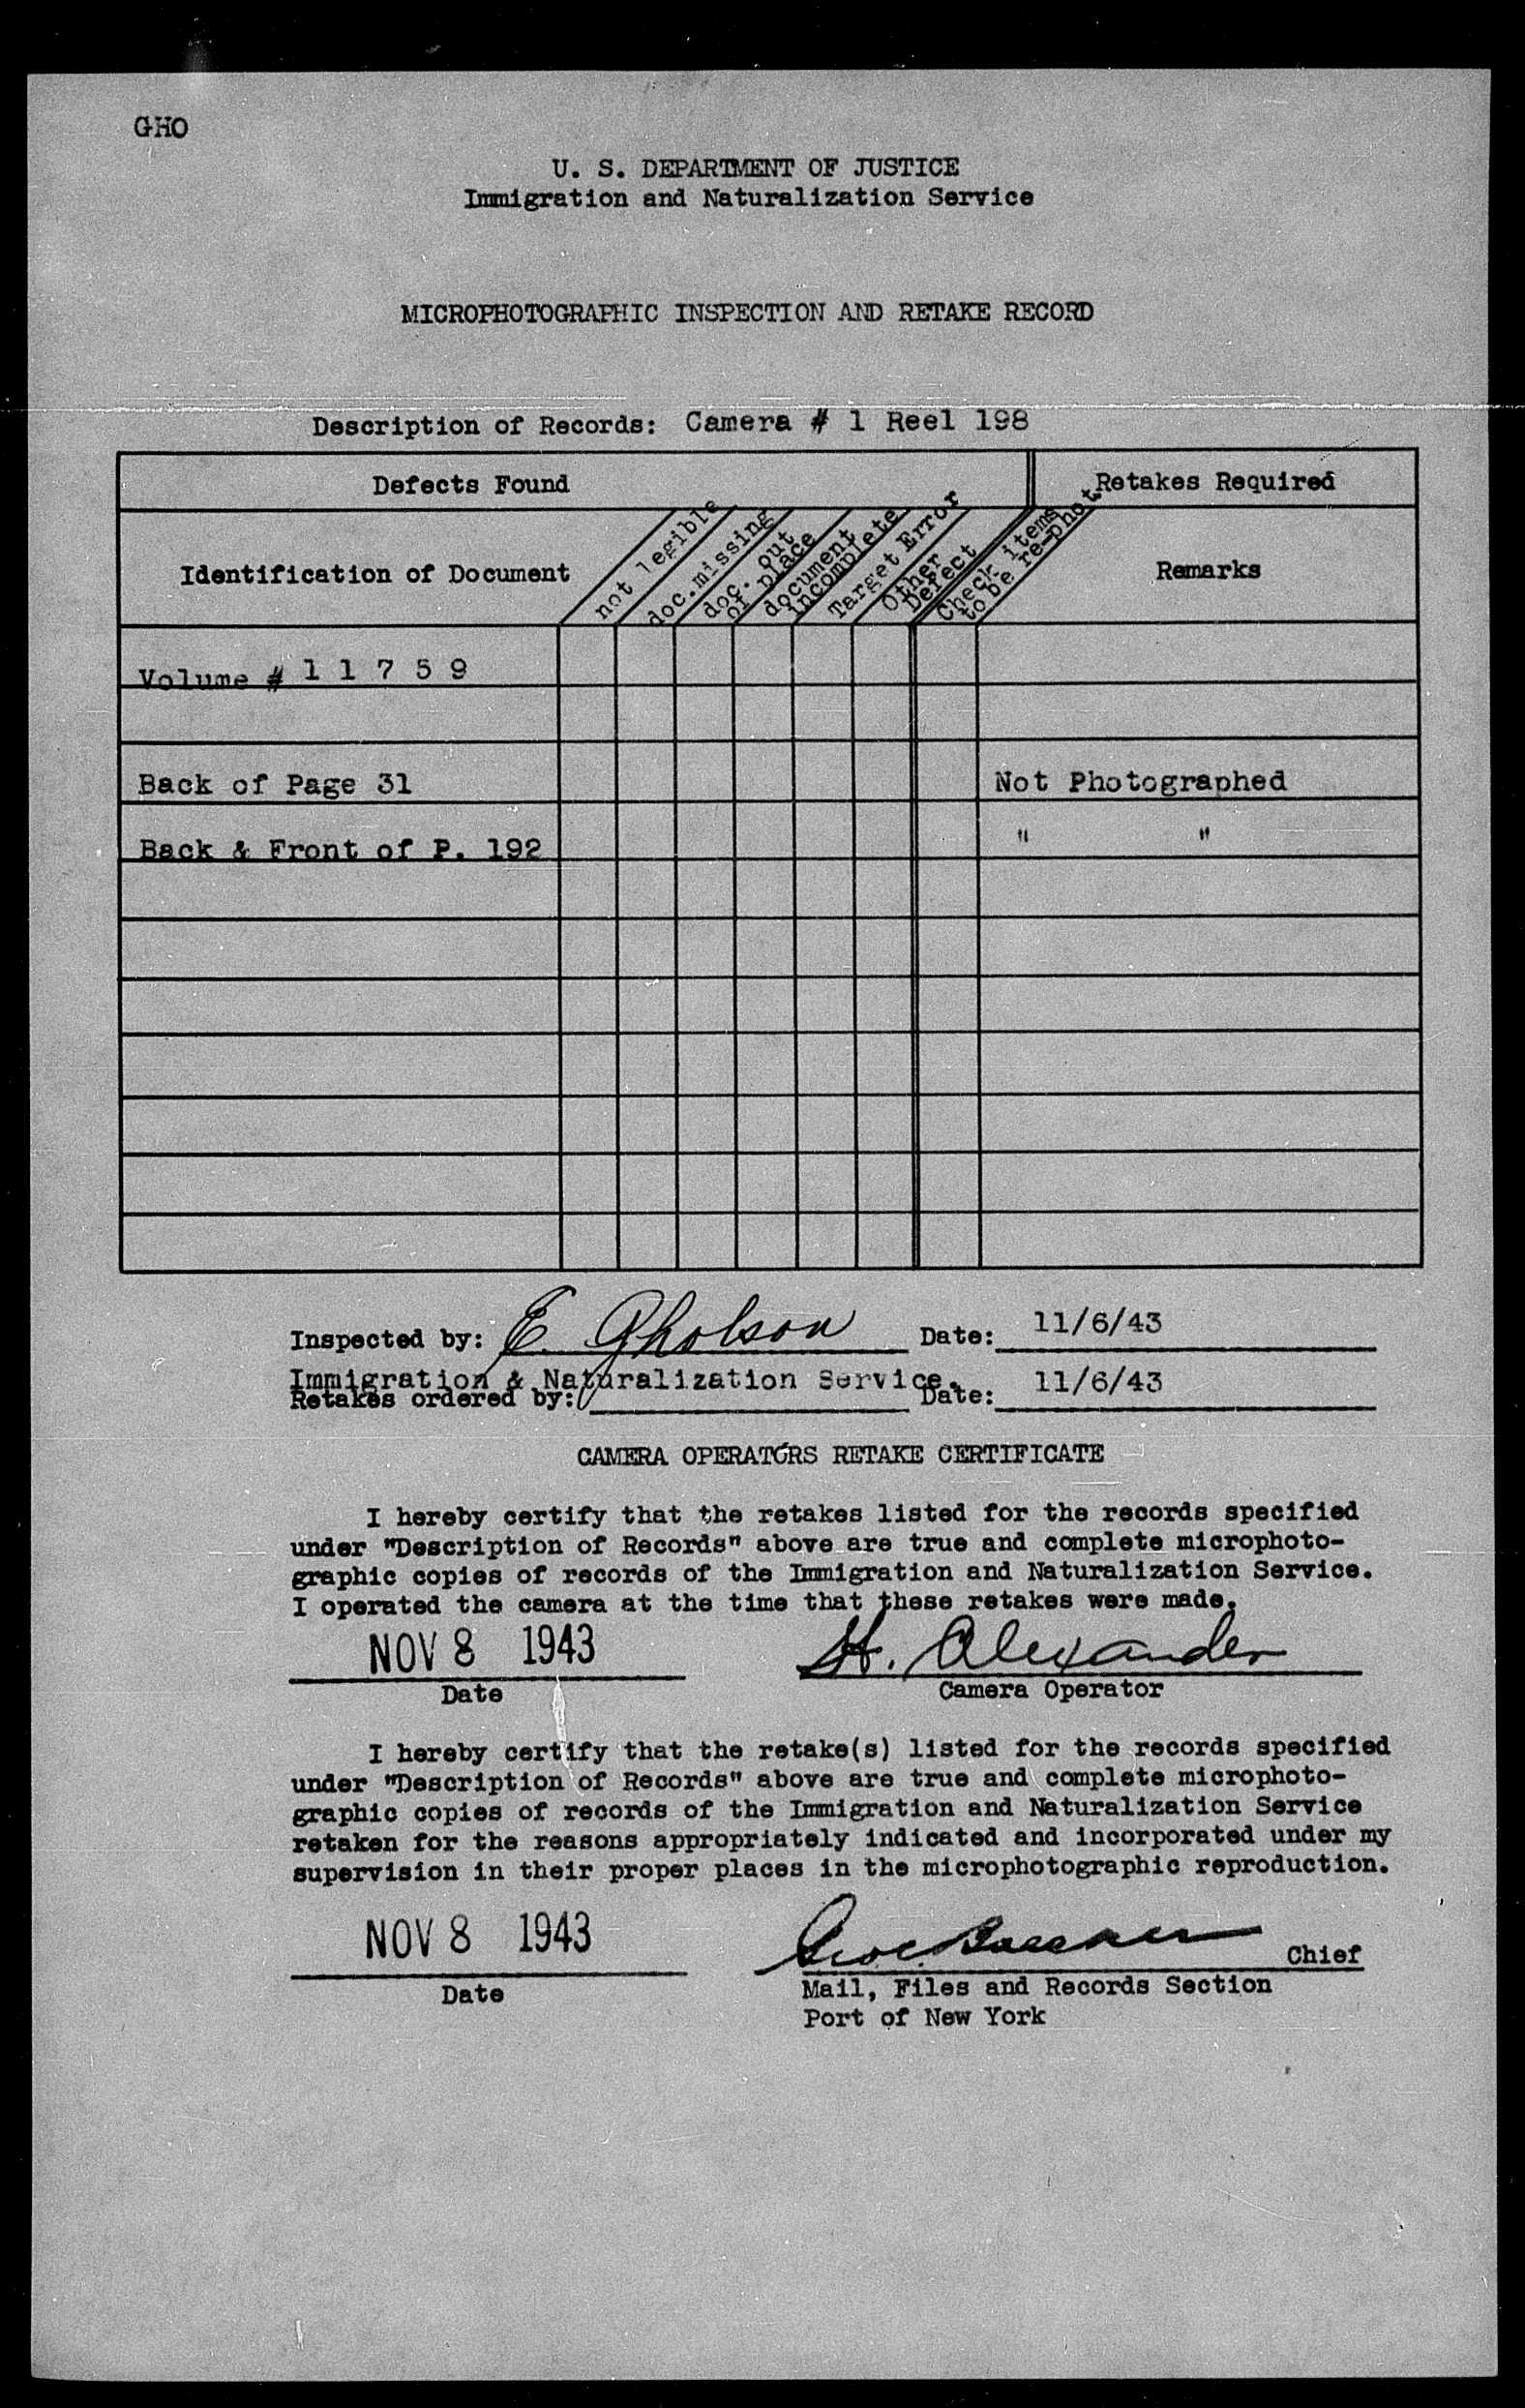 GHO
U. S. DEPARTMENT OF JUSTICE
Immigration and Naturalization Service
MICROPHOTOGRAPHIC INSPECTION AND RETAKE RECORD
Description of Records: Camera # 1 Reel 198
Defects Found
Retakes Required
Identification of Document
not legible
doc.missing
doc. out
of place
document
incomplete
Target Error
Other
Defect
Check items
to be re-phot.
Remarks
Volume # 1 1 7 5 9
Back of Page 31 Not Photographed
Back & Front of P. 192 " "
Inspected by: E. Gholson Date: 11/6/43
Immigration & Naturalization Service.
Retakes ordered by: Date: 11/6/43
CAMERA OPERATORS RETAKE CERTIFICATE
I hereby certify that the retakes listed for the records specified
under "Description of Records" above are true and complete microphoto-
graphic copies of records of the Immigration and Naturalization Service.
I operated the camera at the time that these retakes were made.
NOV 8 1943 H. Alexander
Date Camera Operator
I hereby certify that the retake(s) listed for the records specified
under "Description of Records" above are true and complete microphoto-
graphic copies of records of the Immigration and Naturalization Service
retaken for the reasons appropriately indicated and incorporated under my
supervision in their proper places in the microphotographic reproduction.
NOV 8 1943 Chief
Date Mail, Files and Records Section
Port of New York